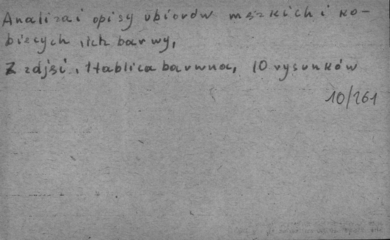 Analiza i opisy ubiorów męzkich i ko-
biecych, ich barwy,
2 zdjęi, 1 tablica barwna, 10 rysunków
10/261